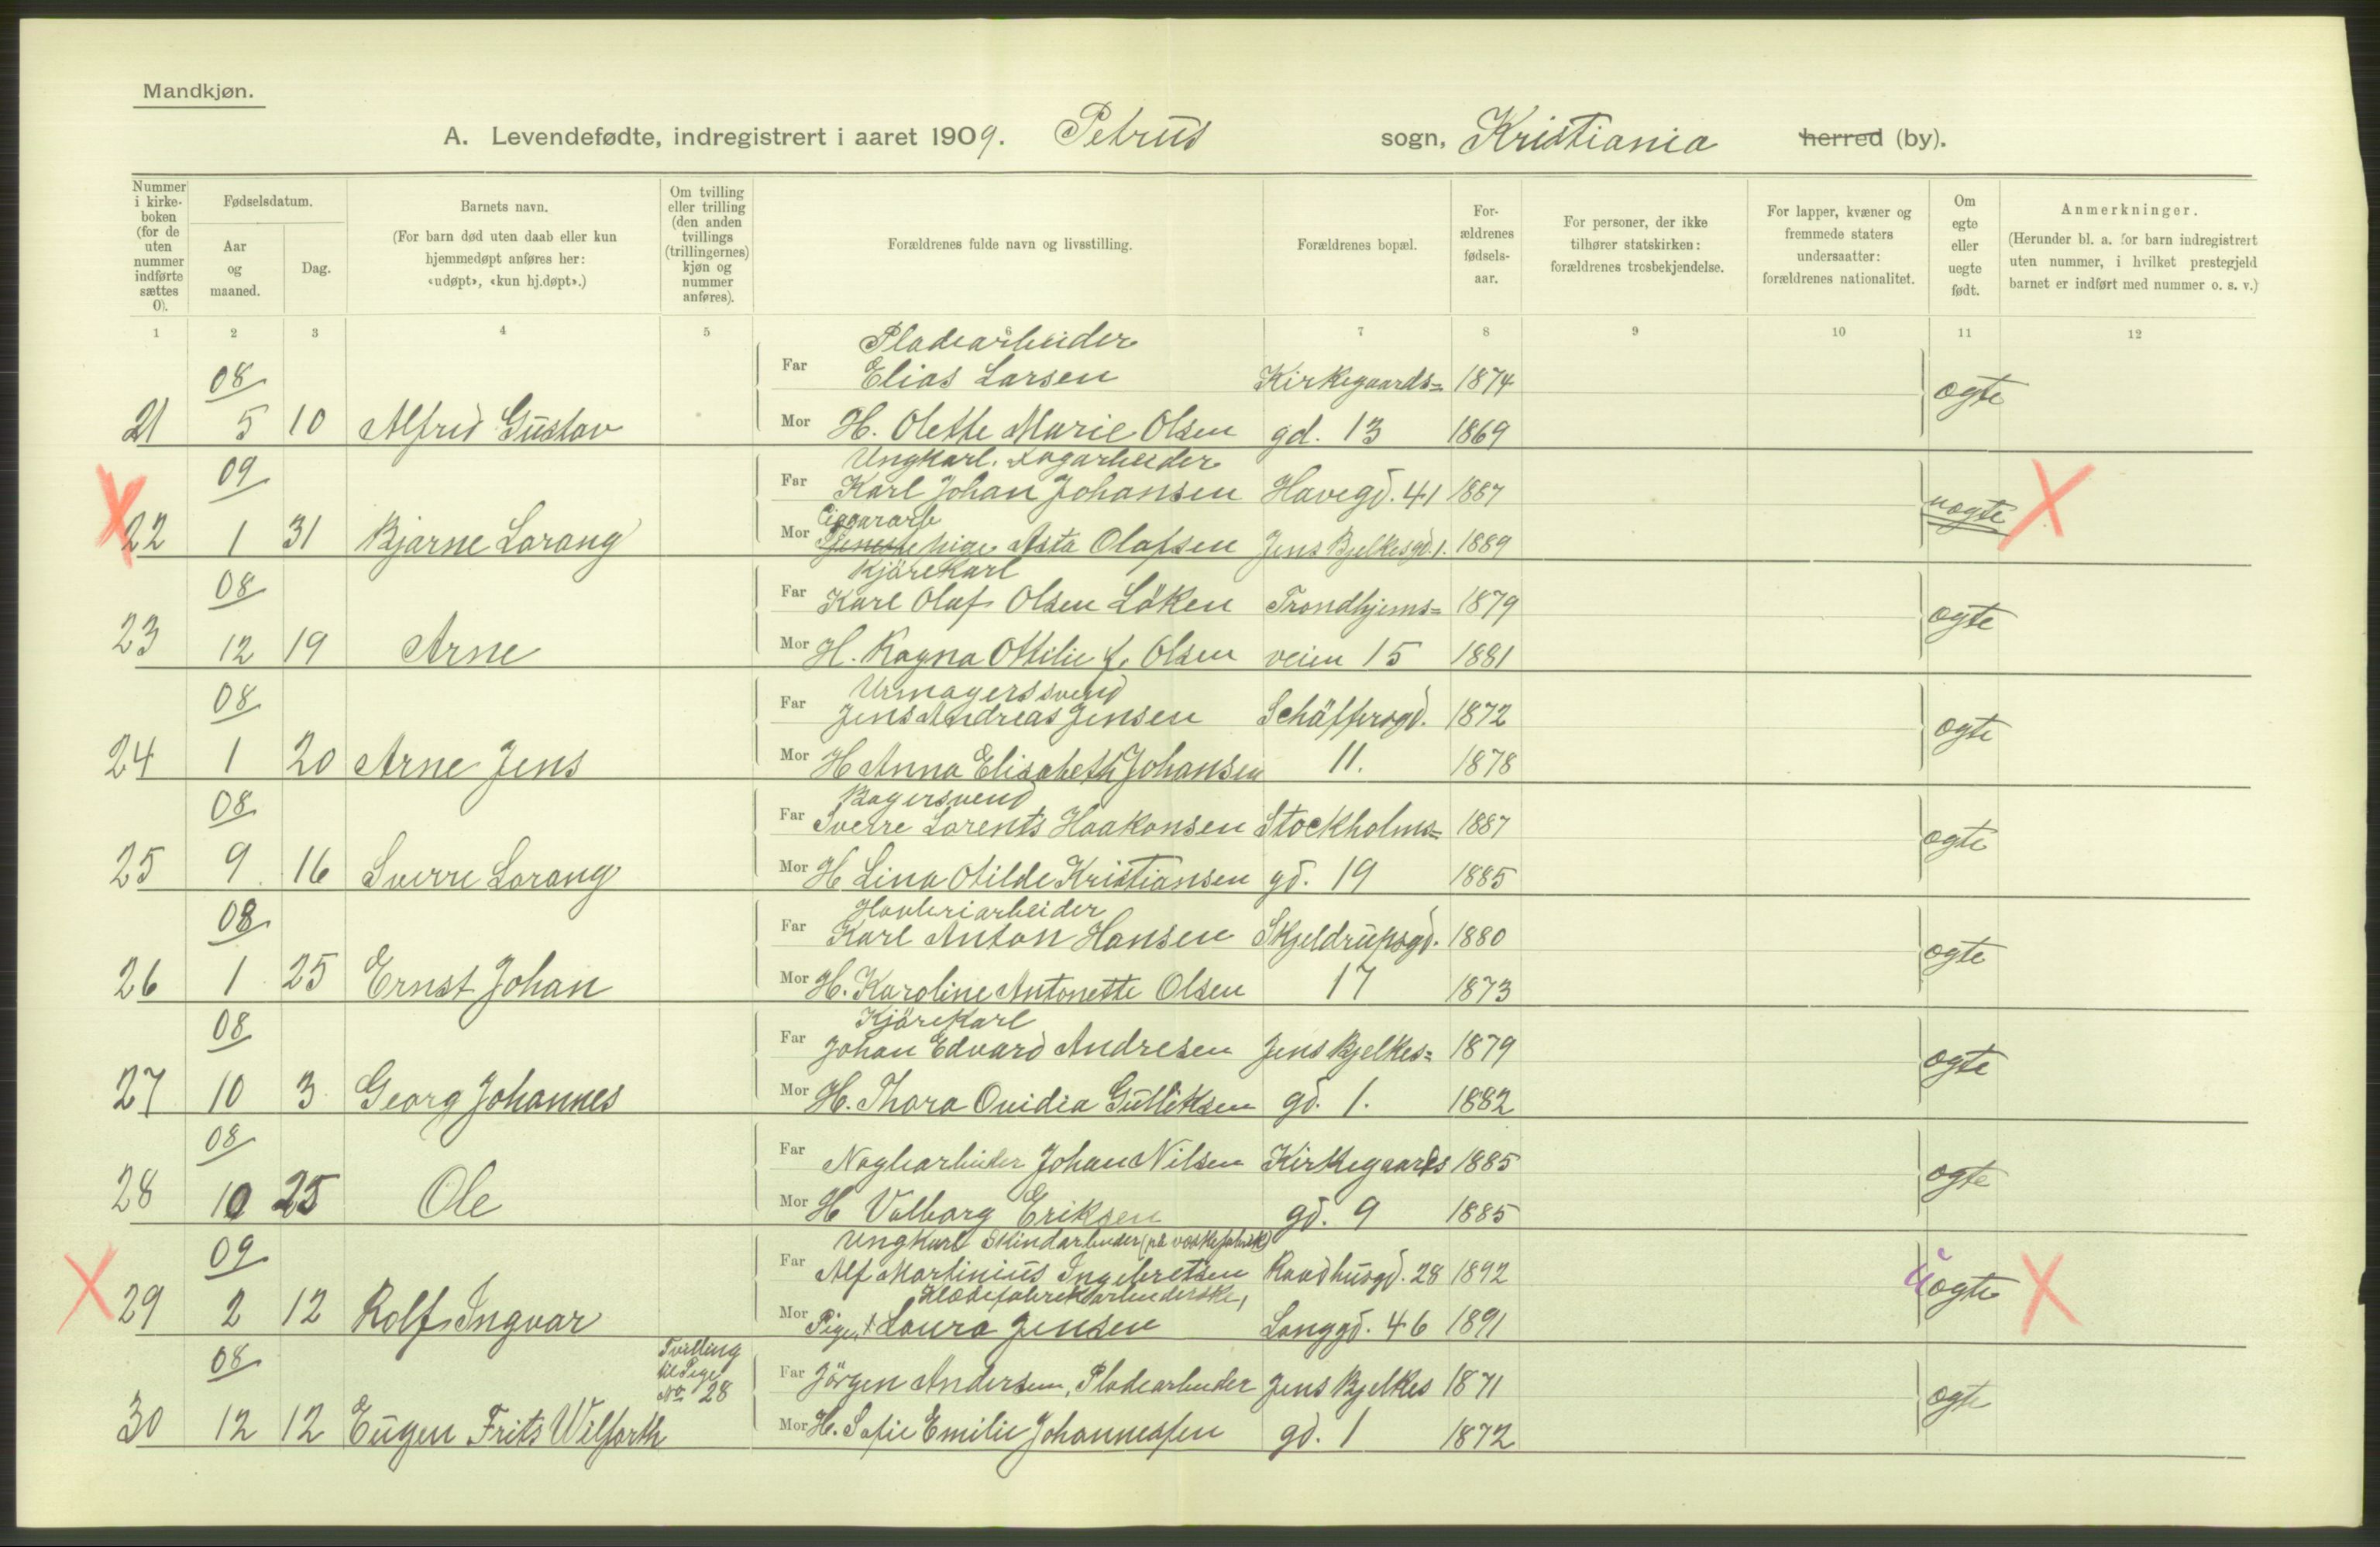 Mandkjøn.
A. Levendefødte, indregistrert i aaret 1909. Petrus sogn, Kristiania herred (by).
Nummer i kirke-boken (for de uten nummer indførte sættes 0).
Fødselsdatum.
Aar og maaned.
Dag.
Barnets navn.
(For barn død uten daab eller kun hjemmedøpt anføres her: «udøpt», «kun hj.døpt».)
Om tvilling eller trilling (den anden tvillings (trillingernes) kjøn og nummer anføres).
Forældrenes fulde navn og livsstilling.
Forældrenes bopæl.
For-ældrenes fødsels-aar.
For personer, der ikke tilhører statskirken: forældrenes trosbekjendelse.
For lapper, kvæner og fremmede staters undersaatter: forældrenes nationalitet.
Om egte eller uegte født.
Anmerkninger.
(Herunder bl. a. for barn indregistrert uten nummer, i hvilket prestegjeld barnet er indført med nummer o. s. v.)
1 2 3 4 5 7 8 9 10 11 12
Pladearbeider
08 Far Elias Larsen Kirkegaards= 1874 ægte
21 5 10 Alfred Gustav Mor H. Olette Marie Olsen gd. 13 1869
Ungkarl.
09 Far Karl Johan Johansen Havegd. 41 1887 uægte X
Ciggararb
X 22 1 31 Bjarne Lorang Mor Tjeneste pige Asta Olafsen Jens Bjelkesgd. 1. 1889
Kjörekarl
08 Far Karl Olaf Olsen Löken Trondhjems= 1879 ægte
23 12 19 Arne Mor H. Ragna Ottilie f. Olsen veien 15 1881
Urmagerssvend
08 Far Jens Andreas Jensen Schäffersgd. 1872 ægte
24 1 20 Arne Jens Mor H Anna Elisabeth Johansen 11. 1878
Bagersvend
08 Far Sverre Lorents Haakonsen Stockholms= 1887 ægte
25 9 16 Sverre Lorang Mor H Lina Otilde Kristiansen gd. 19 1885
08 Far Karl Anton Hansen Skjeldrupsgd. 1880 ægte
26 1 25 Ernst Johan Mor H. Karoline Antonette Olsen 17 1873
Kjörekarl
08 Far Johan Edvard Andresen Jens Bjelkes= 1879 ægte
27 10 3 Georg Johannes Mor H. Thora Ovidia Gulliksen gd. 1. 1882
08 Far Naglearbeider Johan Nilsen Kirkegaards 1885 ægte
28 10 25 Ole Mor H Valborg Eriksen gd. 9 1885
Ungkarl Skindarbeider (på væskefabrik)
09 Far Alf Martinius Ingebretsen Raadhusgd. 28 1892 uægte X
Klædefabrikarbeiderske,
X 29 2 12 Rolf Ingvar Mor Pige, Laura Jensen Langgd. 46 1891
Tvilling til Pige No 28
08 Far Jörgen Andersen, Pladearbeider Jens Bjelkes 1871 ægte
30 12 12 Eugen Frits Wilforth Mor H. Sofie Emilie Johannessen gd. 1 1872